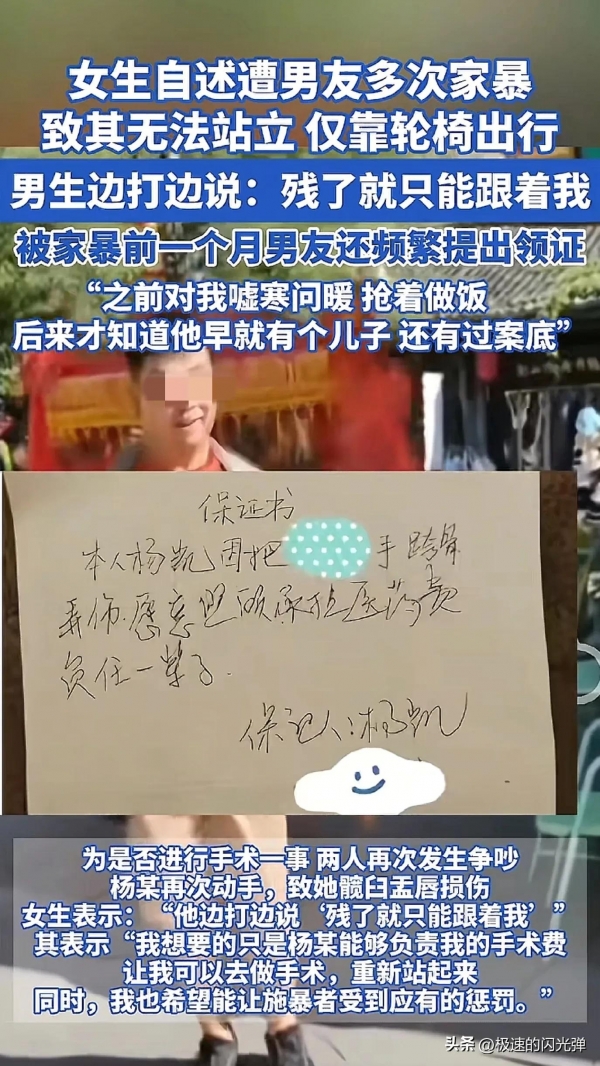 女生自述遭男友多次家暴
致其无法站立 仅靠轮椅出行
男生边打边说：残了就只能跟着我
被家暴前一个月男友还频繁提出领证
“之前对我嘘寒问暖 抢着做饭
后来才知道他早就有个儿子 还有过案底”
保证书
本人杨凯因把 手 跨骨
弄伤.愿意照顾承担医药费
负任一辈子.
保证人:杨凯
为是否进行手术一事 两人再次发生争吵
杨某再次动手，致她髋臼盂唇损伤
女生表示：“他边打边说‘残了就只能跟着我’”
其表示“我想要的只是杨某能够负责我的手术费
让我可以去做手术，重新站起来
同时，我也希望能让施暴者受到应有的惩罚。”
头条 @极速的闪光弹